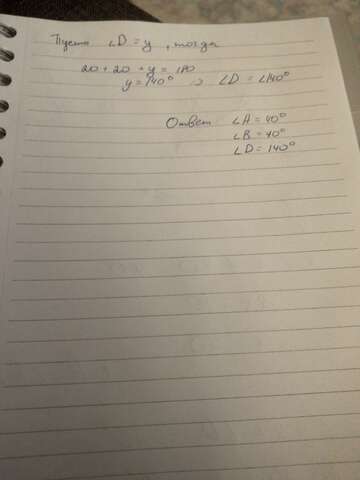 Пусть ∠D = y, тогда
20 + 20 + y = 180
y = 140° ⇒ ∠D = ∠140°
Ответ: ∠A = 40°
∠B = 40°
∠D = 140°